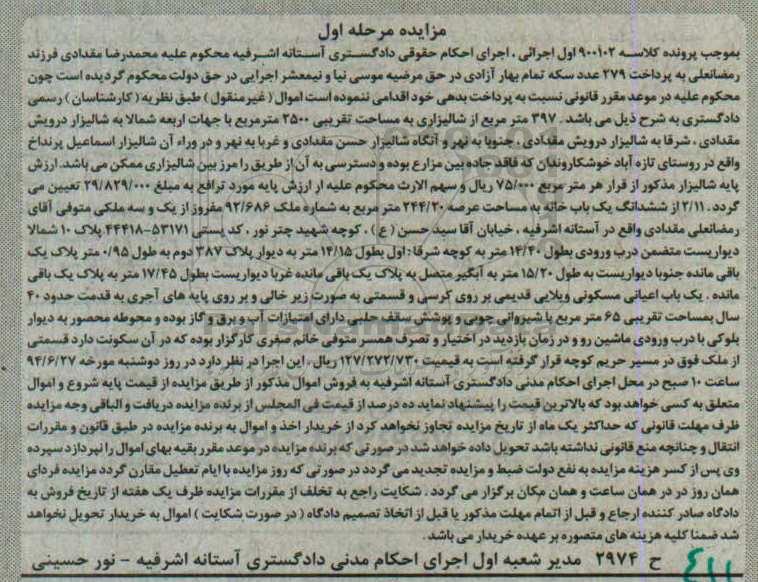 مزایده مرحله اول
بموجب پرونده کلاسه ۹۰۰۱۰۲ اول اجرائی ، اجرای احکام حقوقی دادگستری آستانه اشرفیه محکوم علیه محمدرضا مقدادی فرزند
رمضانعلی به پرداخت ۲۷۹ عدد سکه تمام بهار آزادی در حق مرضیه موسی نیا و نیمعشر اجرایی در حق دولت محکوم گردیده است چون
محکوم علیه در موعد مقرر قانونی نسبت به پرداخت بدهی خود اقدامی ننموده است اموال ( غیر منقول ) طبق نظریه ( کارشناسان ) رسمی
دادگستری به شرح ذیل می باشد . ۳۹۷ متر مربع از شالیزاری به مساحت تقریبی ۲۵۰۰ مترمربع با جهات اربعه شمالا به شالیزار درویش
مقدادی ، شرقا به شالیزار درویش مقدادی ، جنوبا به نهر و آنگاه شالیزار حسن مقدادی و غربا به نهر و در وراء آن شالیزار اسماعیل پرنداخ
واقع در روستای تازه آباد خوشکاروندان که فاقد جاده بین مزارع بوده و دسترسی به آن از طریق را مرز بین شالیزاری ممکن می باشد. ارزش
پایه شالیزار مذکور از قرار هر متر مربع ۷۵/۰۰۰ ریال و سهم الارث محکوم علیه از ارزش پایه مورد ترافع به مبلغ ۲۹/۸۲۹/۰۰۰ تعیین می
گردد . ۲/۱۱ از ششدانگ یک باب خانه به مساحت عرصه ۲۴۴/۲۰ متر مربع به شماره ملک ۹۲/۶۸۶ مفروز از یک و سه ملکی متوفی آقای
رمضانعلی مقدادی واقع در آستانه اشرفیه ، خیابان آقا سید حسن ( ع ) ، کوچه شهید چتر نور ، کد پستی ۵۳۱۷۱-۴۴۴۱۸ پلاک ۱۰ شمالا
دیواریست متضمن درب ورودی بطول ۱۴/۴۰ متر به کوچه شرقا : اول بطول ۱۴/۱۵ متر به دیوار پلاک ۳۸۷ دوم به طول ۰/۹۵ متر پلاک یک
باقی مانده جنوبا دیواریست به طول ۱۵/۲۰ متر به آبگیر متصل به پلاک یک باقی مانده غربا دیواریست بطول ۱۷/۴۵ متر به پلاک یک باقی
مانده . یک باب اعیانی مسکونی ویلایی قدیمی بر روی کرسی و قسمتی به صورت زیر خالی و بر روی پایه های آجری به قدمت حدود ۴۰
سال بمساحت تقریبی ۶۵ متر مربع با شیروانی چوبی و پوشش سقف حلبی دارای امتیازات آب و برق و گاز بوده و محوطه محصور به دیوار
بلوکی با درب ورودی ماشین رو و در زمان بازدید در اختیار و تصرف همسر متوفی خانم صغری کارگزار بوده که در آن سکونت دارد قسمتی
از ملک فوق در مسیر حریم کوچه قرار گرفته است به قیمت ۱۲۷/۲۷۲/۷۳۰ ریال ، این اجرا در نظر دارد در روز دوشنبه مورخه ۹۴/۶/۲۷
ساعت ۱۰ صبح در محل اجرای احکام مدنی دادگستری آستانه اشرفیه به فروش اموال مذکور از طریق مزایده از قیمت پایه شروع و اموال
متعلق به کسی خواهد بود که بالاترین قیمت را پیشنهاد نماید ده درصد از قیمت فی المجلس از برنده مزایده دریافت و الباقی وجه مزایده
ظرف مهلت قانونی که حداکثر یک ماه از تاریخ مزایده تجاوز نخواهد کرد از خریدار اخذ و اموال به برنده مزایده در طبق قانون و مقررات
انتقال و چنانچه منع قانونی نداشته باشد تحویل داده خواهد شد در صورتی که برنده مزایده در موعد مقرر بقیه بهای اموال را نپردازد سپرده
وی پس از کسر هزینه مزایده به نفع دولت ضبط و مزایده تجدید می گردد در صورتی که روز مزایده با ایام تعطیل مقارن گردد مزایده فردای
همان روز در در همان ساعت و همان مکان برگزار می گردد . شکایت راجع به تخلف از مقررات مزایده ظرف یک هفته از تاریخ فروش به
دادگاه صادر کننده ارجاع و قبل از اتمام مهلت مذکور یا قبل از اتخاذ تصمیم دادگاه ( در صورت شکایت ) اموال به خریدار تحویل نخواهد
شد ضمنا کلیه هزینه های متصوره بر عهده خریدار می باشد .
ح ۲۹۷۴ مدیر شعبه اول اجرای احکام مدنی دادگستری آستانه اشرفیه - نور حسینی